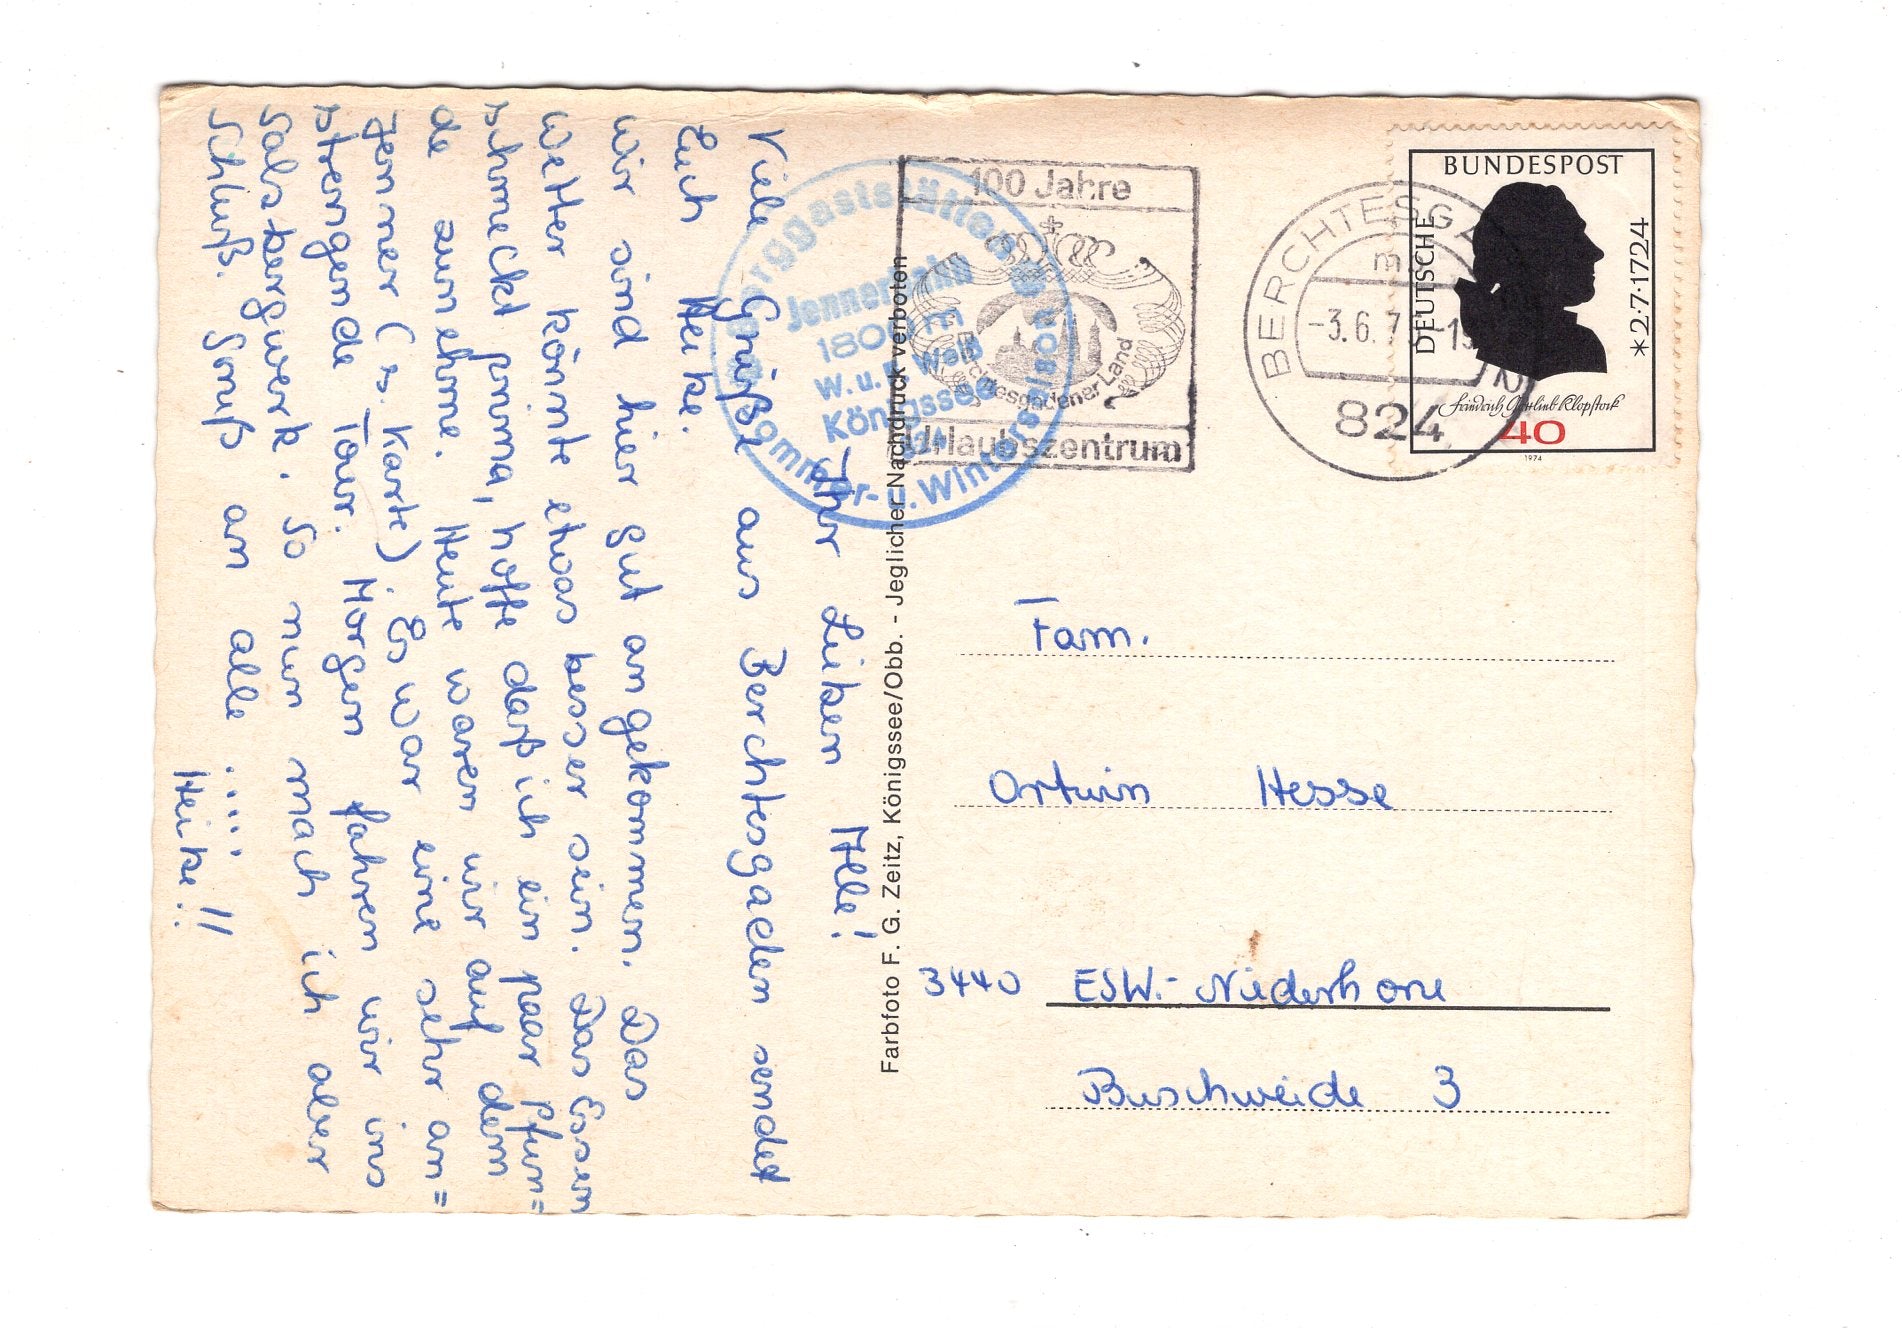 Ihr Lieben Alle!
Viele Grüße aus Berchtesgaden sendet
Euch Heike.
Wir sind hier gut angekommen. Das
Wetter könnte etwas besser sein. Das Essen
schmeckt prima, hoffe daß ich ein paar Pfun=
de zunehme. Heute waren wir auf dem
Jenner (s. Karte). Es war eine sehr an=
strengende Tour. Morgen fahren wir ins
Salzbergwerk. So nun mach ich aber
Schluß. Gruß an alle .....!!
Heike!
Berggaststätten
Jennerbahn
W. u.
Königssee
Sommer- u. Wintersaison
Farbfoto F. G. Zeitz, Königssee/Obb. - Jeglicher Nachdruck verboten
100 Jahre
Berchtesgadener Land
Urlaubszentrum
BERCHTESGA
-3.6.7
824
DEUTSCHE
BUNDESPOST
*2·7·1724
Friedrich Gottlieb Klopstock
40
1974
Fam.
Ortwin Hesse
3440 ESW.- Niederhone
Buschweide 3